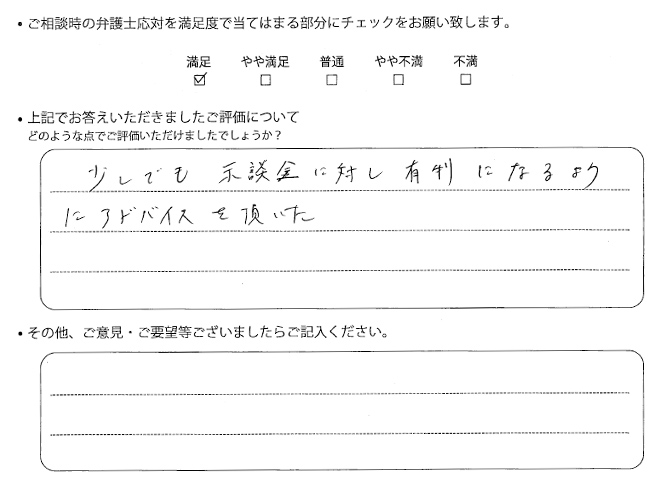 ・ご相談時の弁護士応対を満足度で当てはまる部分にチェックをお願い致します。
満足 やや満足 普通 やや不満 不満
☑ □ □ □ □
・上記でお答えいただきましたご評価について
どのような点でご評価いただけましたでしょうか？
少しでも 示談金に対し 有利になるよう
にアドバイスを頂いた
・その他、ご意見・ご要望等ございましたらご記入ください。